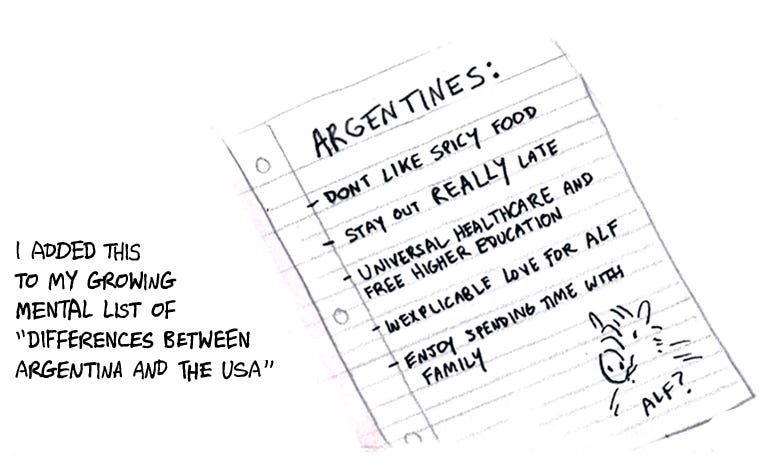 I ADDED THIS
TO MY GROWING
MENTAL LIST OF
"DIFFERENCES BETWEEN
ARGENTINA AND THE USA"
ARGENTINES:
- DONT LIKE SPICY FOOD
- STAY OUT REALLY LATE
- UNIVERSAL HEALTHCARE AND
FREE HIGHER EDUCATION
- INEXPLICABLE LOVE FOR ALF
- ENJOY SPENDING TIME WITH
FAMILY
ALF?